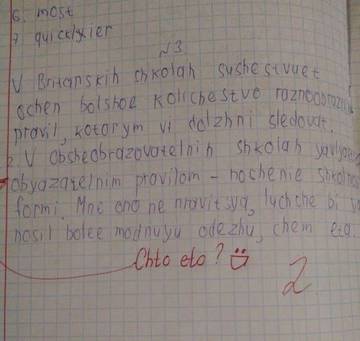 6. most
7. quicklykier
№3
V Britanskih chkolah sushestvuet
ochen bolshoe kolichestvo raznoobrazn
pravil, kotorym vi dolzhni sledovat.
2. V obsheobrazovatelnih shkolah yavlyaet
obyazatelnim pravilom - nochenie shkolno
formi. Mne eno ne nravitsya, luchche bi ya
nosil bolee modnuyu odezhu, chem eto.
Chto eto?
2